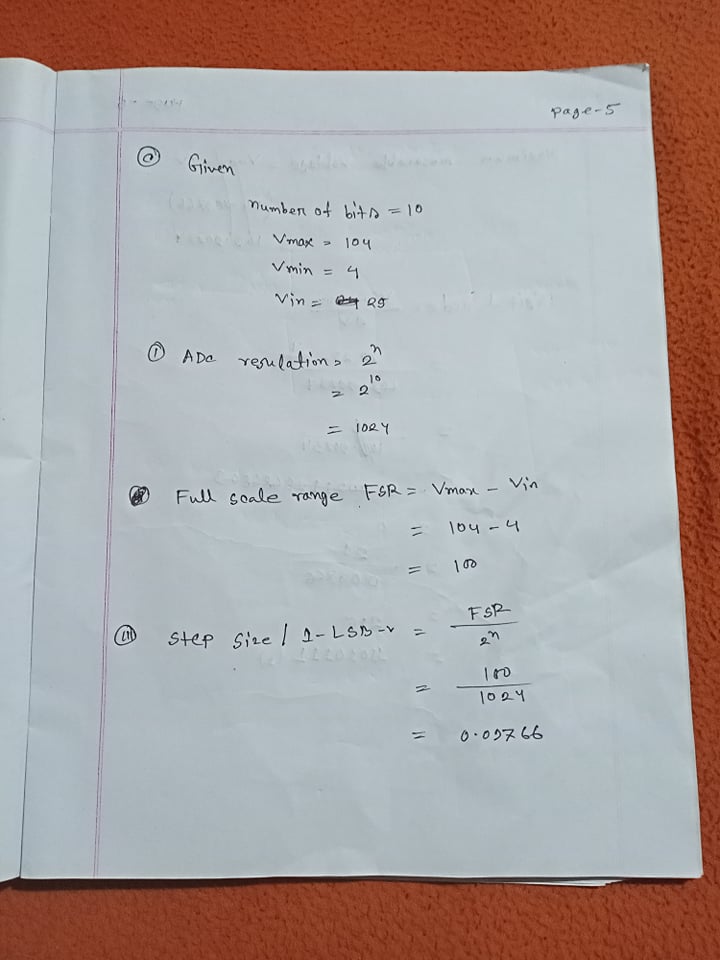 page-5
ⓐ Given
number of bits = 10
Vmax = 104
Vmin = 4
Vin = 25
① ADC resulation = 2^n
= 2^10
= 1024
Full scale range FSR = Vmax - Vin
= 104 - 4
= 100
(iii) Step Size / 1-LSB-v = FSR / 2^n
= 100 / 1024
= 0.09766